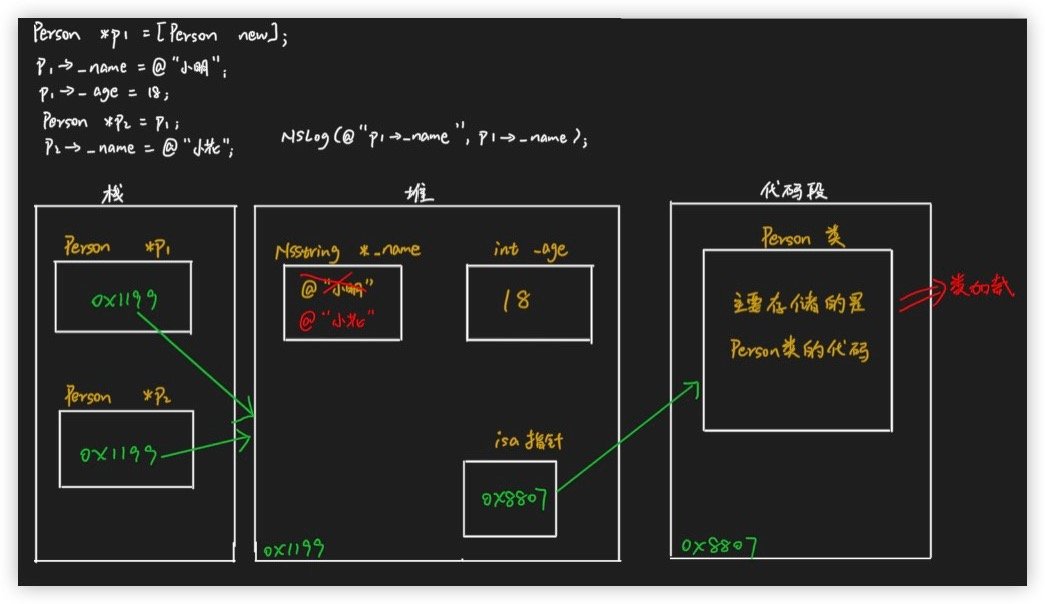 Person *p1 = [Person new];
p1→_name = @"小明";
p1→_age = 18;
Person *p2 = p1;
p2→_name = @"小花";
NSLog(@"p1→_name", p1→_name);
栈
堆
代码段
Person *p1
0x1199
Person *p2
0x1199
NSString *_name
@"小明"
@"小花"
int _age
18
isa 指针
0x8807
0x1199
Person 类
主要存储的是
Person类的代码
类加载
0x8807